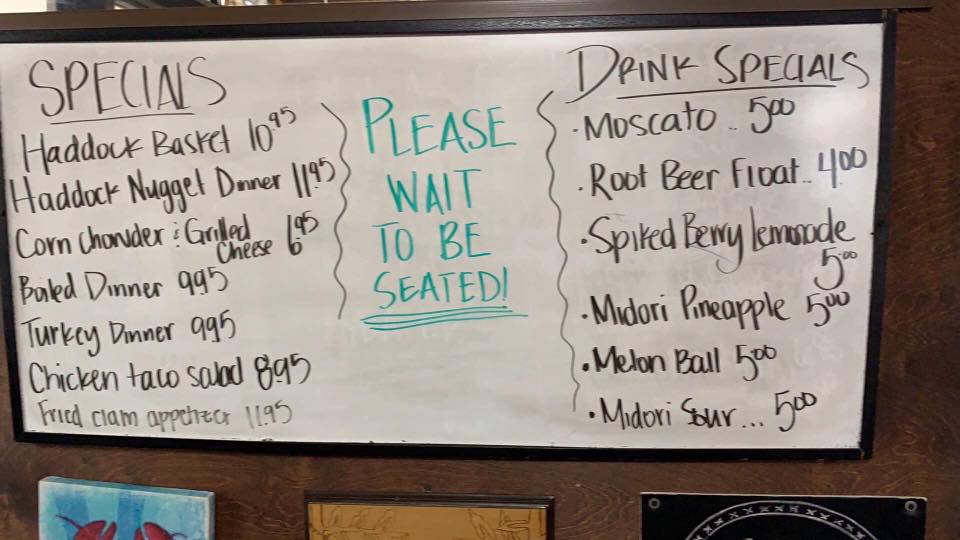 SPECIALS
Haddock Basket 10.95
Haddock Nugget Dinner 11.95
Corn Chowder & Grilled
Cheese 6.95
Boiled Dinner 9.95
Turkey Dinner 9.95
Chicken taco salad 8.95
Fried clam appetizer 11.95
PLEASE
WAIT
TO BE
SEATED!
DRINK SPECIALS
·Moscato .. 5.00
·Root Beer Float.. 4.00
·Spiked Berry lemonade
5.00
·Midori Pineapple 5.00
·Melon Ball 5.00
·Midori Sour... 5.00